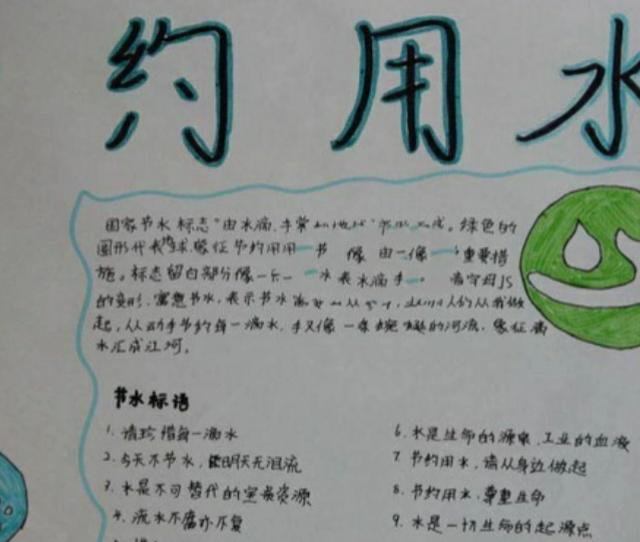 约用水
国家节水标志"由水滴,手掌和地球 组成。绿色的
圆形代表地球,象征节约用 节 像 由一像 重要措
施。标志留白部分像一 水表水滴手 字母JS
的变形,寓意节水,表示节水 从我做
起,从动手节约每一滴水,手又像一条蜿蜒的河流,象征滴
水汇成江河。
节水标语
1. 请珍惜每一滴水
6. 水是生命的源泉、工业的血液
2. 今天不节水,明天无泪流
7 节约用水,请从身边做起
3. 水是不可替代的宝贵资源
8. 节约用水,尊重生命
4. 流水不腐亦不复
9. 水是一切生命的起源点